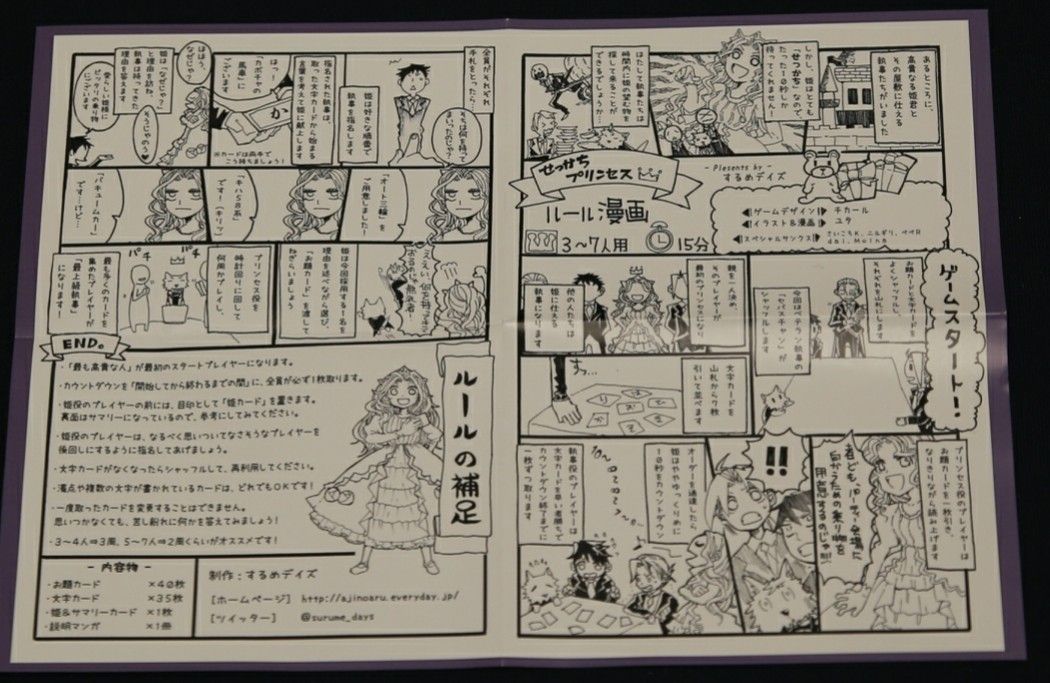 あるところに、
高貴なる姫君と
その屋敷に仕える
執事たちがいました
しかし、姫はとても
「せっかち」なので、
たった10秒しか
待ってくれません!
はたして執事たちは
時間内に姫の望む物を
探して来ることが
できるでしょうか…
せっかち
プリンセス
- Plesents by -
するめデイズ
ルール漫画
3〜7人用
15分
ゲームデザイン
チカール
イラスト&漫画
ユタ
スペシャルサンクス
ゲームスタート!
お題カードと文字カードを
よくシャッフルし、
それぞれ山札にします
今回はベテラン執事の
「セバスチャン」が
シャッフルします
親を一人決め、
そのプレイヤーが
最初のプリンセスになり
他の人たちは
姫に仕える
執事になります
文字カードを
山札から7枚
引いて並べます
プリンセス役のプレイヤーは
お題カードを一枚引き、
なりきりながら読み上げます
者ども、パーティ会場に
向かうための乗り物を
用意するのじゃ!!
!!
オーダーを通達したら
姫はややゆっくりめに
10秒をカウントダウン
執事役のプレイヤーは
文字カードを早い者勝ちで
カウントダウン終了までに
一枚ずつ取ります
全員がそれぞれ
手札をとったら…
そちは何を持って
まいったのじゃ?
姫は好きな順番で
執事を指名します
指名された執事は、
取った文字カードから始まる
言葉を考えて姫に献上します
はっ!
「カボチャの
馬車」に
ございます
か
※カードは両手で
こう持ちましょう!
ほほう、
なぜじゃ?
姫は「なぜじゃ?」
と理由を訪ね
執事は持ってきた
理由を答えます
愛らしい姫様に
ピッタリの乗り物
にございます
そうじゃのう♥
「オート三輪」を
ご用意しました!
「キハ58系」
です!(キリッ)
「バキュームカー」
ですけど…
姫は今回採用する1名を
理由を述べながら選び、
「お題カード」を渡して
ねぎらいましょう
プリンセス役を
時計回りに回して
何周かプレイし、
最も多くのカードを
集めたプレイヤーが
「最上級執事」
になります!
パチ
パチ
END。
ルールの補足
・「最も高貴な人」が最初のスタートプレイヤーになります。
・カウントダウンを「開始してから終わるまでの間」に、全員が必ず1枚取ります。
・姫役のプレイヤーの前には、目印として「姫カード」を置きます。
裏面はサマリーになっているので、参考にしてみてください。
・姫役のプレイヤーは、なるべく思いついてなさそうなプレイヤーを
後回しにするように指名してあげましょう。
・文字カードがなくなったらシャッフルして、再利用してください。
・濁点や複数の文字が書かれているカードは、どれでもOKです!
・一度取ったカードを変更することはできません。
思いつかなくても、苦し紛れに何かを答えてみましょう!
・3〜4人⇨3周、5〜7人⇨2周くらいがオススメです!
- 内容物 -
・お題カード ×40枚
・文字カード ×35枚
・姫&サマリーカード ×1枚
・説明マンガ ×1冊
制作:するめデイズ
[ホームページ] http://ajinoaru.everyday.jp/
[ツイッター] @surume_days